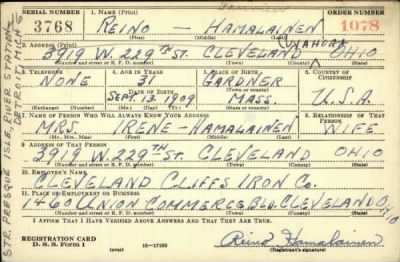 SERIAL NUMBER 1. NAME (Print) ORDER NUMBER
3768 REINO — HAMALAINEN 1078
(First) (Middle) (Last)
2. ADDRESS (Print)
3919 W. 229TH ST. CLEVELAND OHIO
(Number and street or R. F. D. number) (Town) (County) (State)
3. TELEPHONE 4. AGE IN YEARS 5. PLACE OF BIRTH 6. COUNTRY OF CITIZENSHIP
NONE 31 GARDNER
DATE OF BIRTH (Town or county)
SEPT. 13 1909 MASS. U.S.A.
(Exchange) (Number) (Mo.) (Day) (Yr.) (State or country)
7. NAME OF PERSON WHO WILL ALWAYS KNOW YOUR ADDRESS 8. RELATIONSHIP OF THAT PERSON
MRS. IRENE — HAMALAINEN WIFE
(Mr., Mrs., Miss) (First) (Middle) (Last)
9. ADDRESS OF THAT PERSON
3919 W. 229TH ST. CLEVELAND OHIO
(Number and street or R. F. D. number) (Town) (County) (State)
10. EMPLOYER'S NAME
CLEVELAND CLIFFS IRON CO.
11. PLACE OF EMPLOYMENT OR BUSINESS
1460 UNION COMMERCE BLD CLEVELAND OHIO
(Number and street or R. F. D. number) (Town) (County) (State)
I AFFIRM THAT I HAVE VERIFIED ABOVE ANSWERS AND THAT THEY ARE TRUE.
REGISTRATION CARD
D. S. S. Form 1 (over) 16—17105 Reino Hamalainen
(Registrant's signature)
STR. PRESQUE ISLE, RIVER STATION—
DETROIT, MICH